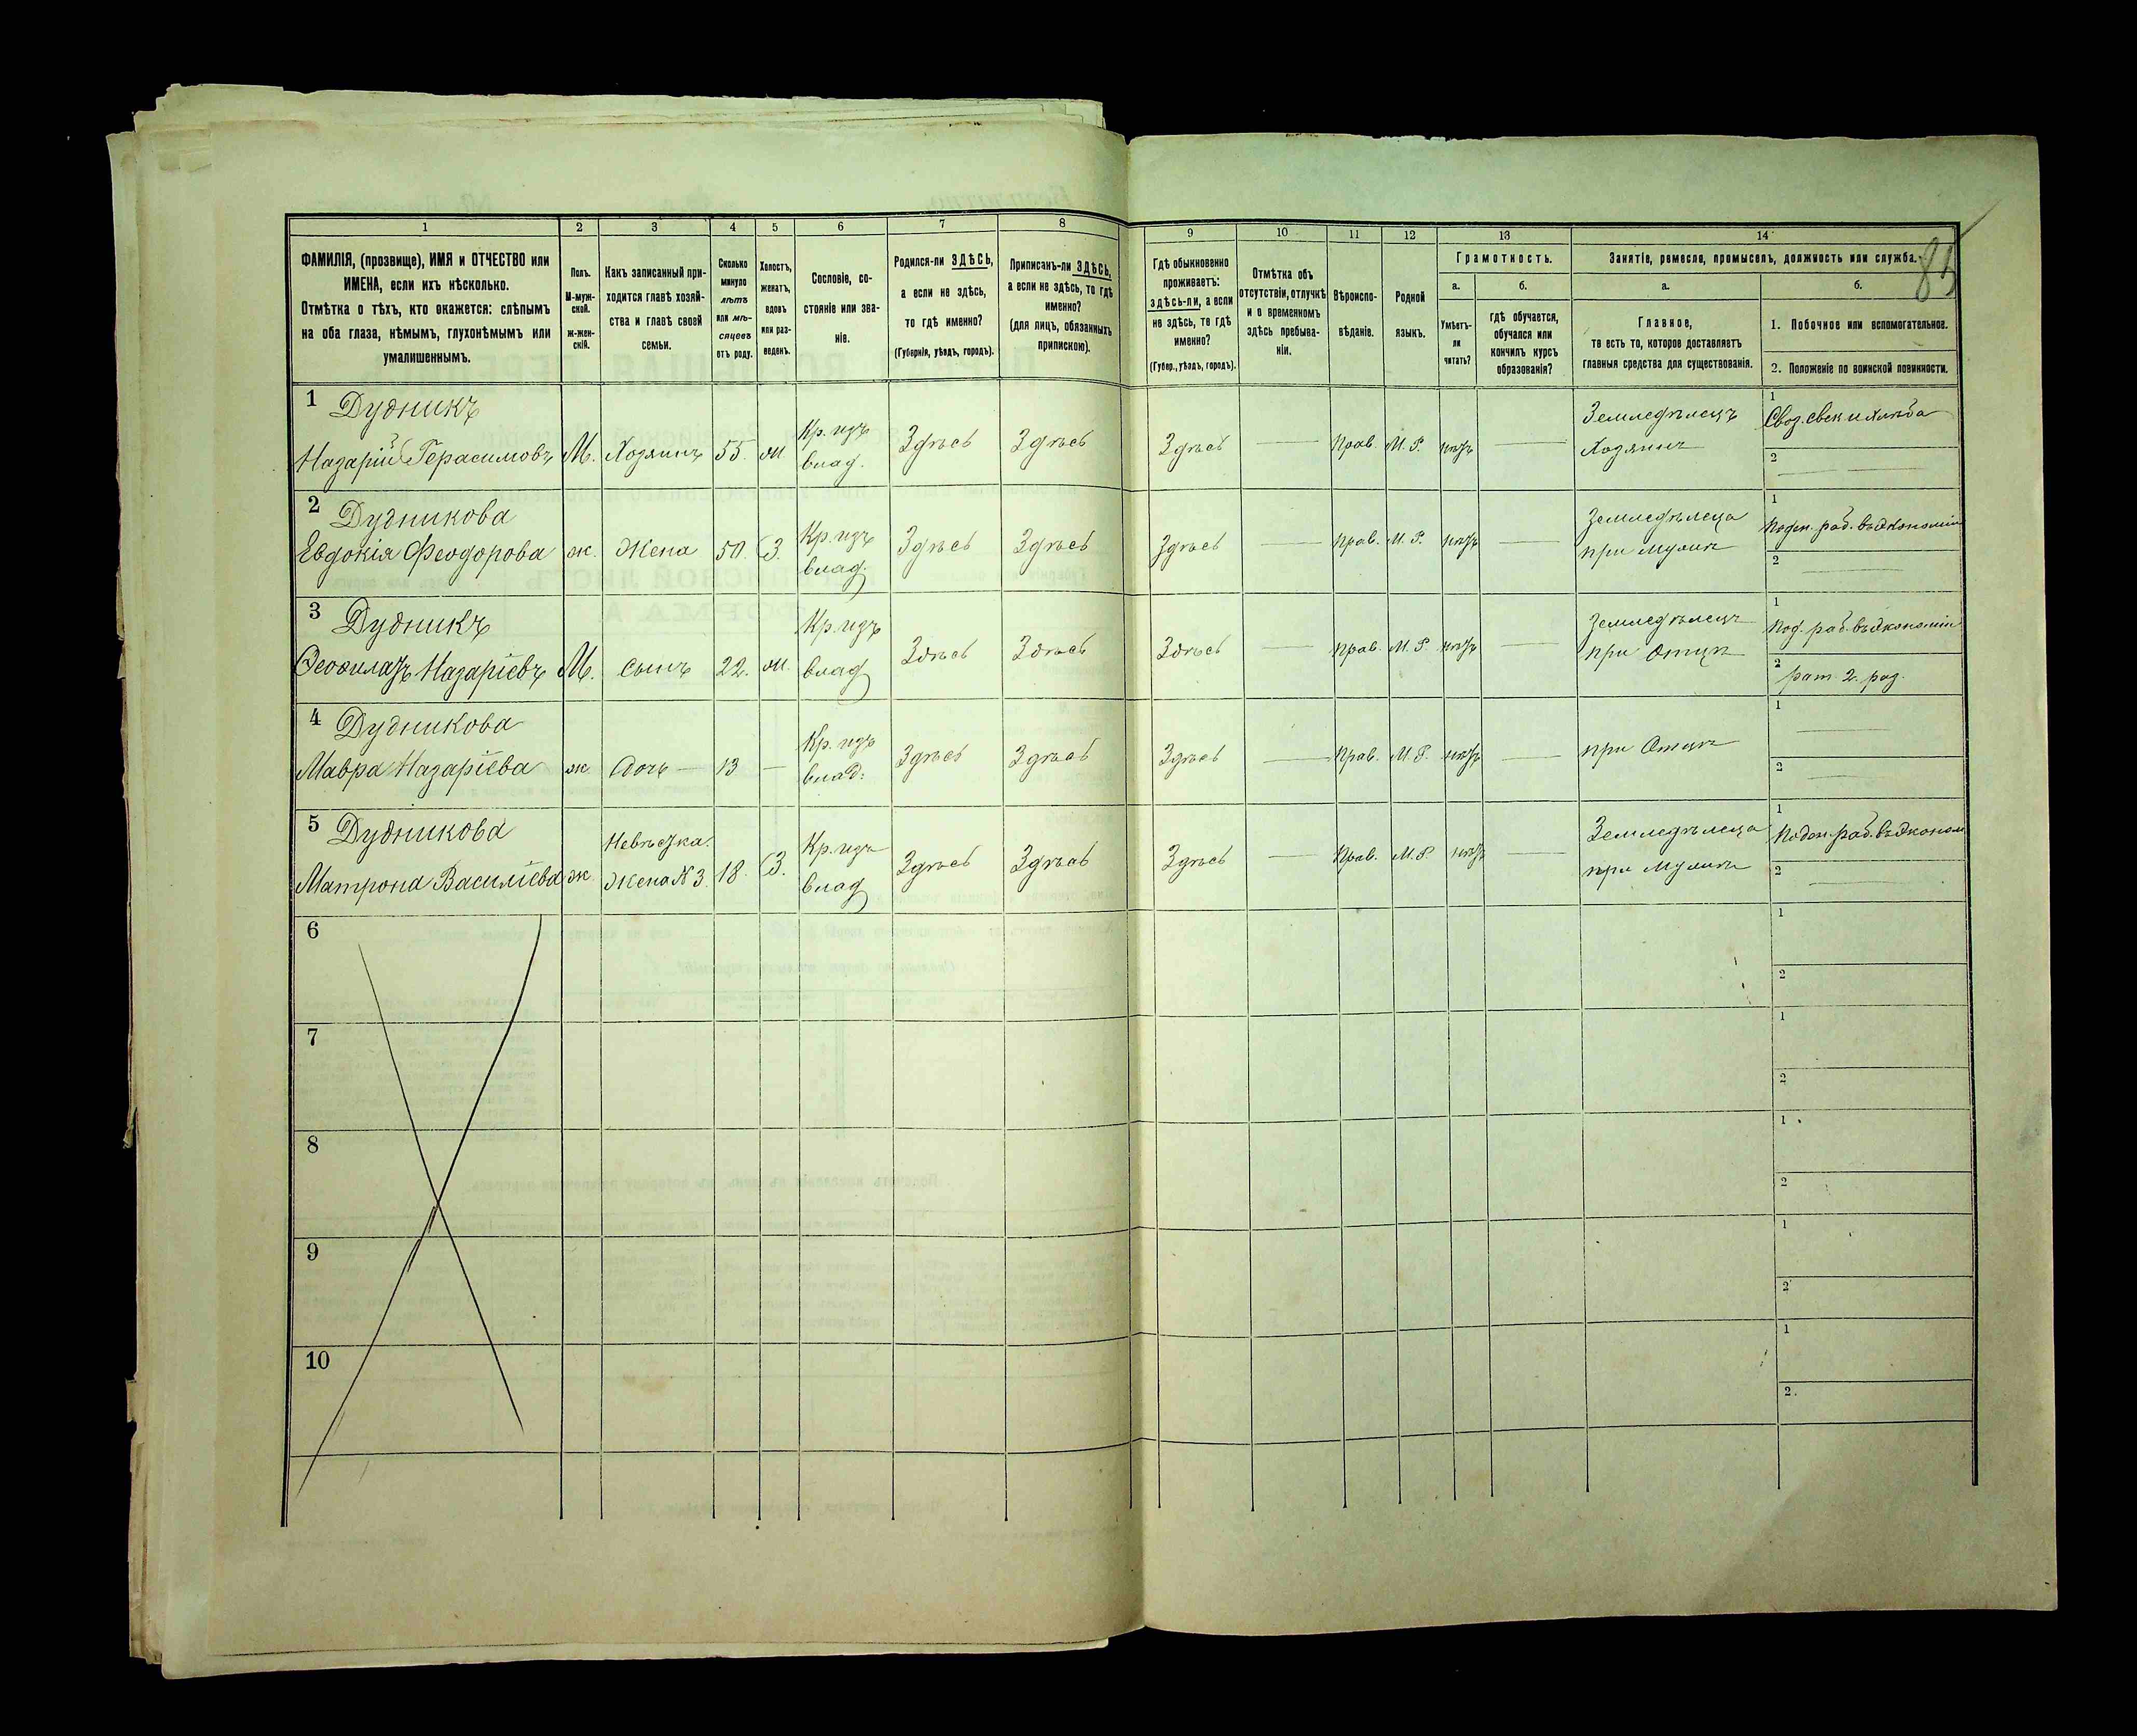 1 2 3 4 5 6 7 8 9 10 11 12 13 14
ФАМИЛІЯ, (прозвище), ИМЯ и ОТЧЕСТВО или
ИМЕНА, если ихъ нѣсколько.
Отмѣтка о тѣхъ, кто окажется: слѣпымъ
на оба глаза, нѣмымъ, глухонѣмымъ или
умалишеннымъ.
Полъ.
М-муж-
ской.
ж-жен-
скій.
Какъ записанный при-
ходится главѣ хозяй-
ства и главѣ своей
семьи.
Сколько
минуло
лѣтъ
или мѣ-
сяцевъ
отъ роду.
Холостъ,
женатъ,
вдовъ
или раз-
веденъ.
Сословіе, со-
стояніе или зва-
ніе.
Родился-ли ЗДѢСЬ,
а если не здѣсь,
то гдѣ именно?
(Губернія, уѣздъ, городъ).
Приписанъ-ли ЗДѢСЬ,
а если не здѣсь, то гдѣ
именно?
(для лицъ, обязанныхъ
припискою).
Гдѣ обыкновенно
проживаетъ:
здѣсь-ли, а если
не здѣсь, то гдѣ
именно?
(Губер., уѣздъ, городъ).
Отмѣтка объ
отсутствіи, отлучкѣ
и о временномъ
здѣсь пребыва-
ніи.
Вѣроиспо-
вѣданіе.
Родной
языкъ.
Грамотность.
а. б.
Умѣетъ-
ли
читать?
гдѣ обучается,
обучался или
кончилъ курсъ
образованія?
Занятіе, ремесло, промыселъ, должность или служба.
85
а. б.
Главное,
то есть то, которое доставляетъ
главныя средства для существованія.
1. Побочное или вспомогательное.
2. Положеніе по воинской повинности.
1 Дудникъ
Назарій Герасимовъ М. Хозяинъ 55. ж Кр. изъ
влад. Здѣсь Здѣсь Здѣсь — Прав. М. Р. нѣтъ —
Земледѣлецъ
Хозяинъ
1
2
2 Дудникова
Евдокія Феодорова ж. Жена 50. З. Кр. изъ
влад. Здѣсь Здѣсь Здѣсь — Прав. М. Р. нѣтъ —
Земледѣлеца
при мужѣ
1 Поден. раб. въ экономіи
2 —
3 Дудникъ
Назаріевъ М. Сынъ 22. ж. Кр. изъ
влад Здѣсь Здѣсь Здѣсь — Прав. М. Р. нѣтъ —
Земледѣлецъ
при Отцѣ
1 Под. раб. въ экономіи
2 рат. 2. раз.
4 Дудникова
Мавра Назаріева ж Дочь — 13 — Кр. изъ
влад. Здѣсь Здѣсь Здѣсь — Прав. М. Р. нѣтъ —
при Отцѣ
1 —
2 —
5 Дудникова
Матрона Василіева ж Невѣстка.
Жена N 3. 18. З. Кр. изъ
влад Здѣсь Здѣсь Здѣсь — Прав. М. Р. нѣтъ —
Земледѣлеца
при мужѣ
1 Поден. раб. въ эконом
2 —
6
1
2
7
1
2
8
1
2
9
1
2
10
1
2.